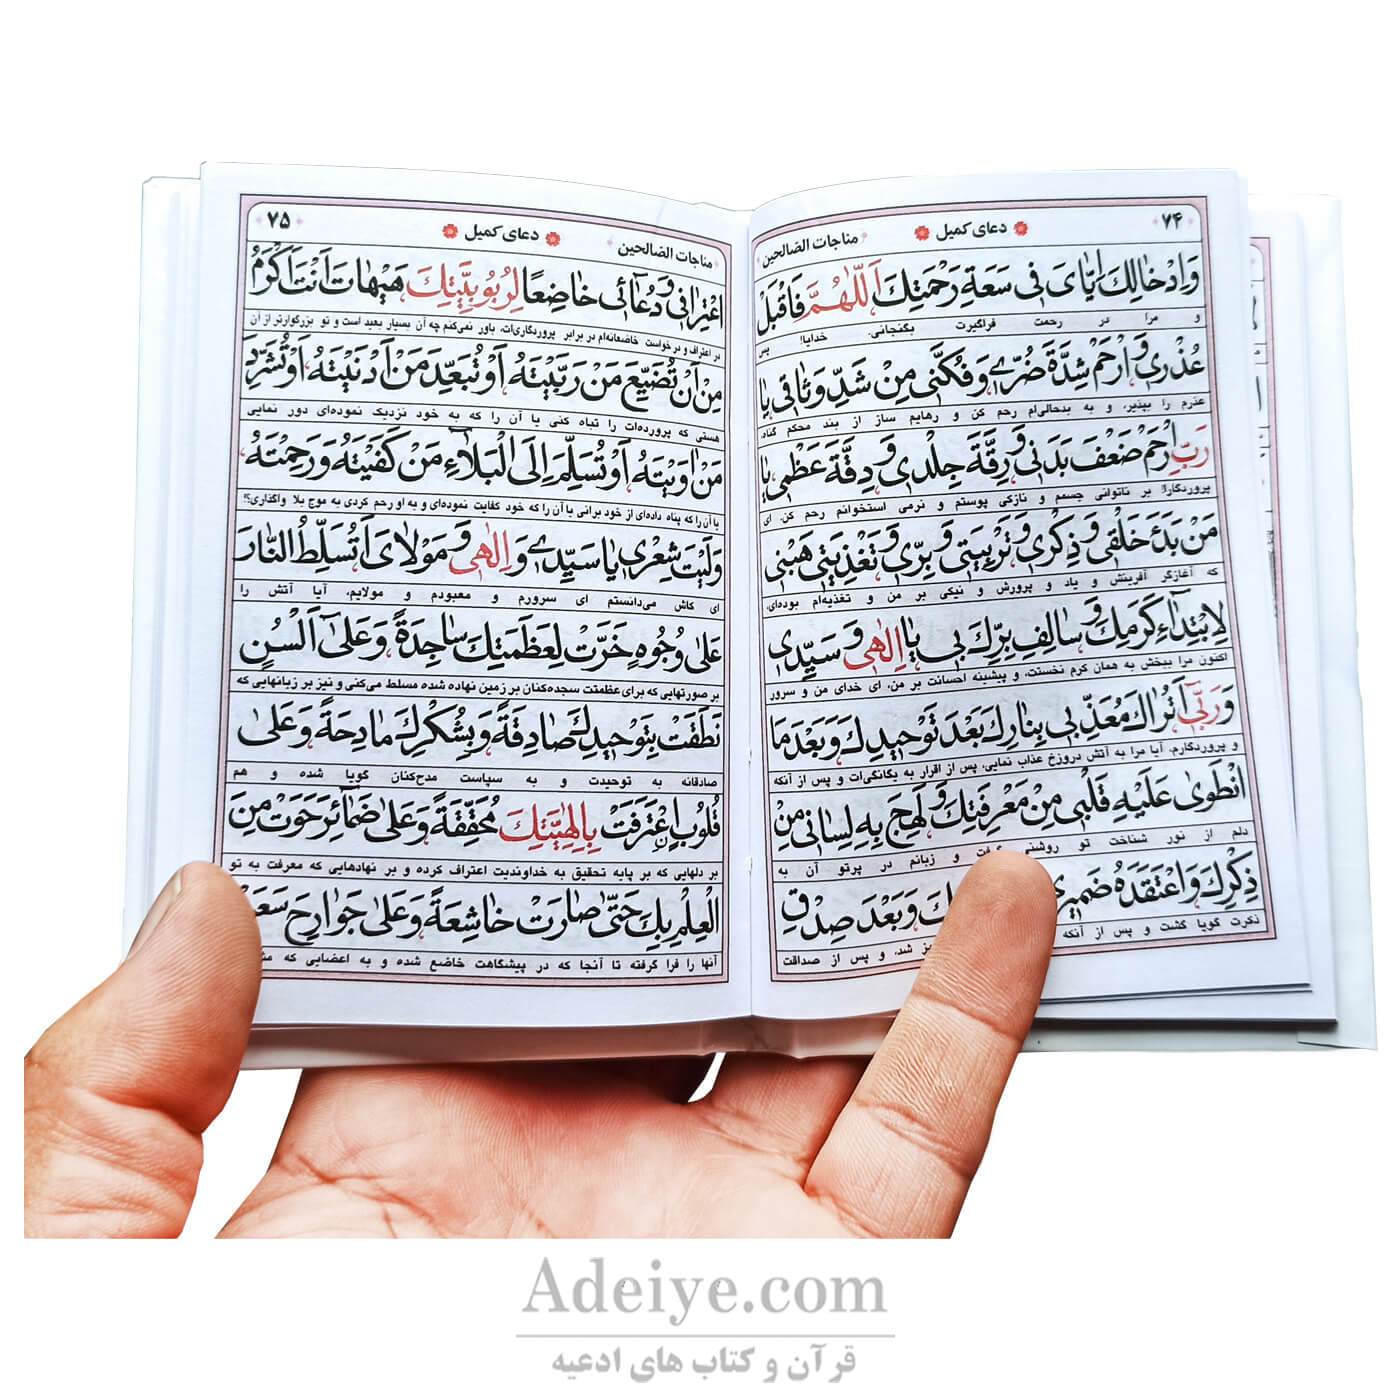 ۷۴
دعای کمیل
مناجات الصالحین
وَاِدْخالِكَ اِيّاىَ فى سَعَةِ رَحْمَتِكَ اَللّٰهُمَّ فَاقْبَلْ
و مرا در رحمت فراگیرت بگنجانی. خدایا! پس
عُذْرى وَ ارْحَمْ شِدَّةَ ضُرّى وَ فُكَّنى مِنْ شَدِّ وَثاقى يا
عذرم را بپذیر، و به بدحالی‌ام رحم کن و رهایم ساز از بند محکم گناه،
رَبِّ ارْحَمْ ضَعْفَ بَدَنى وَ رِقَّةَ جِلْدى وَ دِقَّةَ عَظْمى يا
پروردگارا! بر ناتوانی جسم و نازکی پوستم و نرمی استخوانم رحم کن. ای
مَنْ بَدَءَ خَلْقى وَ ذِكْرى وَ تَرْبِيَتى وَ بِرّى وَ تَغْذِيَتى هَبْنى
که آغازگر آفرینش و یاد و پرورش و نیکی بر من و تغذیه‌ام بوده‌ای،
لِابْتِداۤءِ كَرَمِكَ وَ سالِفِ بِرِّكَ بى يا اِلٰهى وَ سَيِّدى
اکنون مرا ببخش به همان کرم نخستت، و پیشینه احسانت بر من، ای خدای من و سرور
وَ رَبّى اَتُراكَ مُعَذِّبى بِنارِكَ بَعْدَ تَوْحيدِكَ وَ بَعْدَ مَا
و پروردگارم، آیا مرا به آتش دوزخ عذاب نمایی، پس از اقرار به یگانگی‌ات و پس از آنکه
انْطَوىٰ عَلَيْهِ قَلْبى مِنْ مَعْرِفَتِكَ وَ لَهِجَ بِهِ لِسانى مِنْ
دلم از نور شناخت تو روشنی گرفت و زبانم در پرتو آن به
ذِكْرِكَ وَ اعْتَقَدَهُ ضَميرى وَ بَعْدَ صِدْقِ
ذکرت گویا گشت و پس از آنکه شد، و پس از صداقت
۷۵
دعای کمیل
مناجات الصالحین
اعْتِرافى وَ دُعاۤئى خاضِعًا لِرُبُوبِيَّتِكَ هَيْهاتَ اَنْتَ اَكْرَمُ
در اعتراف و درخواست خاضعانه‌ام در برابر پروردگاری‌ات، باور نمی‌کنم چه آن بسیار بعید است و تو بزرگوارتر از آن
مِنْ اَنْ تُضَيِّعَ مَنْ رَبَّيْتَهُ اَوْ تُبَعِّدَ مَنْ اَدْنَيْتَهُ اَوْ تُشَرِّدَ
هستی که پرورده‌ات را تباه کنی یا آن را که به خود نزدیک نموده‌ای دور نمایی
مَنْ اٰوَيْتَهُ اَوْ تُسَلِّمَ اِلَى الْبَلاۤءِ مَنْ كَفَيْتَهُ وَ رَحِمْتَهُ
یا آن را که پناه داده‌ای از خود برانی یا آن را که خود کفایت نموده‌ای و به او رحم کردی به موج بلا واگذاری؟!
وَ لَيْتَ شِعْرى يا سَيِّدى وَ اِلٰهى وَ مَوْلاىَ اَتُسَلِّطُ النّارَ
ای کاش می‌دانستم ای سرورم و معبودم و مولایم، آیا آتش را
عَلىٰ وُجُوهٍ خَرَّتْ لِعَظَمَتِكَ ساجِدَةً وَ عَلىٰ اَلْسُنٍ
بر صورتهایی که برای عظمتت سجده‌کنان بر زمین نهاده شده مسلط می‌کنی و نیز بر زبانهایی که
نَطَقَتْ بِتَوْحيدِكَ صادِقَةً وَ بِشُكْرِكَ مادِحَةً وَ عَلىٰ
صادقانه به توحیدت و به سپاست مدح‌کنان گویا شده و هم
قُلُوبٍ اعْتَرَفَتْ بِاِلٰهِيَّتِكَ مُحَقِّقَةً وَ عَلىٰ ضَماۤئِرَ حَوَتْ مِنَ
بر دلهایی که بر پایه تحقیق به خداوندیت اعتراف کرده و بر نهادهایی که معرفت به تو
الْعِلْمِ بِكَ حَتّىٰ صارَتْ خاشِعَةً وَ عَلىٰ جَوارِحَ
آنها را فرا گرفته تا آنجا که در پیشگاهت خاضع شده و به اعضایی که
Adeiye.com
قرآن و کتاب های ادعیه